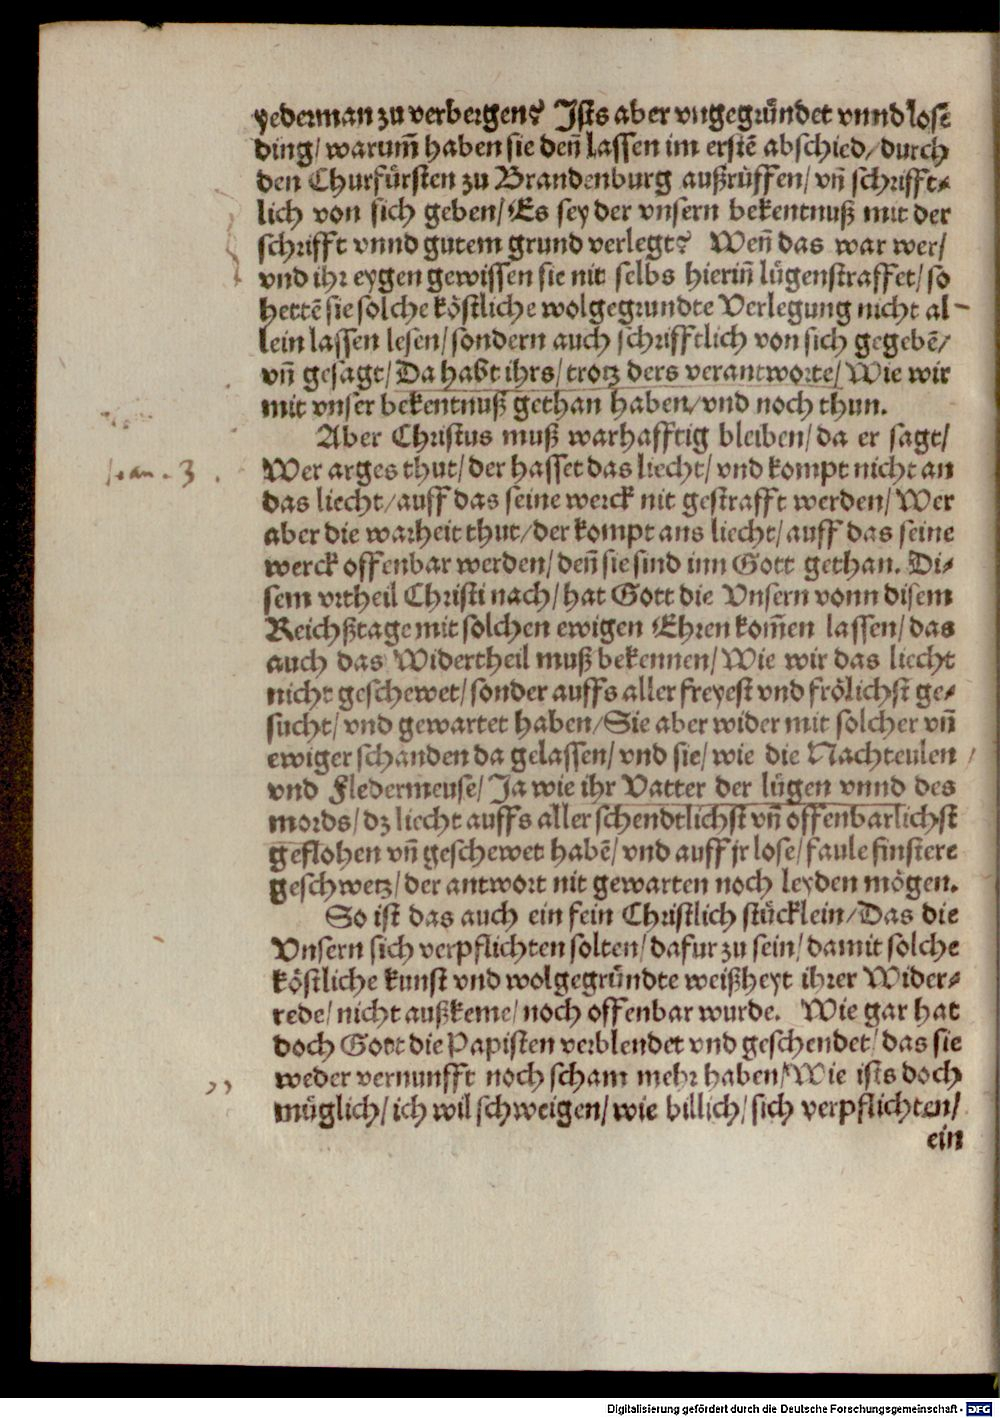 yederman zu verbergen? Ists aber vngegründet vnnd losē
ding/ warum̄ haben sie den̄ lassen im erstē abschied/ durch
den Churfürsten zu Brandenburg außrüffen/ vn̄ schrifft⸗
lich von sich geben/ Es sey der vnsern bekentnuß mit der
schrifft vnnd gutem grund verlegt? Wen̄ das war wer/
vnd ihr eygen gewissen sie nit selbs hierin̄ lügenstraffet/ so
hettē sie solche köstliche wolgegrundte Verlegung nicht al
lein lassen lesen/ sondern auch schrifftlich von sich gegebē/
vn̄ gesagt/ Da habt ihrs/ trotz ders verantworte/ Wie wir
mit vnser bekentnuß gethan haben/ vnd noch thun.
Aber Christus muß warhafftig bleiben/ da er sagt/
Joan. 3.
Wer arges thut/ der hasset das liecht/ vnd kompt nicht an
das liecht/ auff das seine werck nit gestrafft werden/ Wer
aber die warheit thut/ der kompt ans liecht/ auff das seine
werck offenbar werden/ den̄ sie sind inn Gott gethan. Di⸗
sem vrtheil Christi nach/ hat Gott die Vnsern vonn disem
Reichßtage mit solchen ewigen Ehren kom̄en lassen/ das
auch das Widertheil muß bekennen/ Wie wir das liecht
nicht geschewet/ sonder auffs aller freyest vnd frölichst ge⸗
sucht/ vnd gewartet haben/ Sie aber wider mit solcher vn̄
ewiger schanden da gelassen/ vnd sie/ wie die Nachteulen
vnd Fledermeuse/ Ja wie ihr Vatter der lügen vnnd des
mords/ dz liecht auffs aller schendtlichst vn̄ offenbarlichst
geflohen vn̄ geschewet habē/ vnd auff jr lose/ faule finstere
geschwetz/ der antwort nit gewarten noch leyden mögen.
So ist das auch ein fein Christlich stücklein/ Das die
Vnsern sich verpflichten solten/ dafur zu sein/ damit solche
köstliche kunst vnd wolgegründte weißheyt ihrer Wider⸗
rede/ nicht außkeme/ noch offenbar wurde. Wie gar hat
doch Gott die Papisten verblendet vnd geschendet/ das sie
weder vernunfft noch scham mehr haben/ Wie ists doch
müglich/ ich wil schweigen/ wie billich/ sich verpflichten/
ein
Digitalisierung gefördert durch die Deutsche Forschungsgemeinschaft - DFG